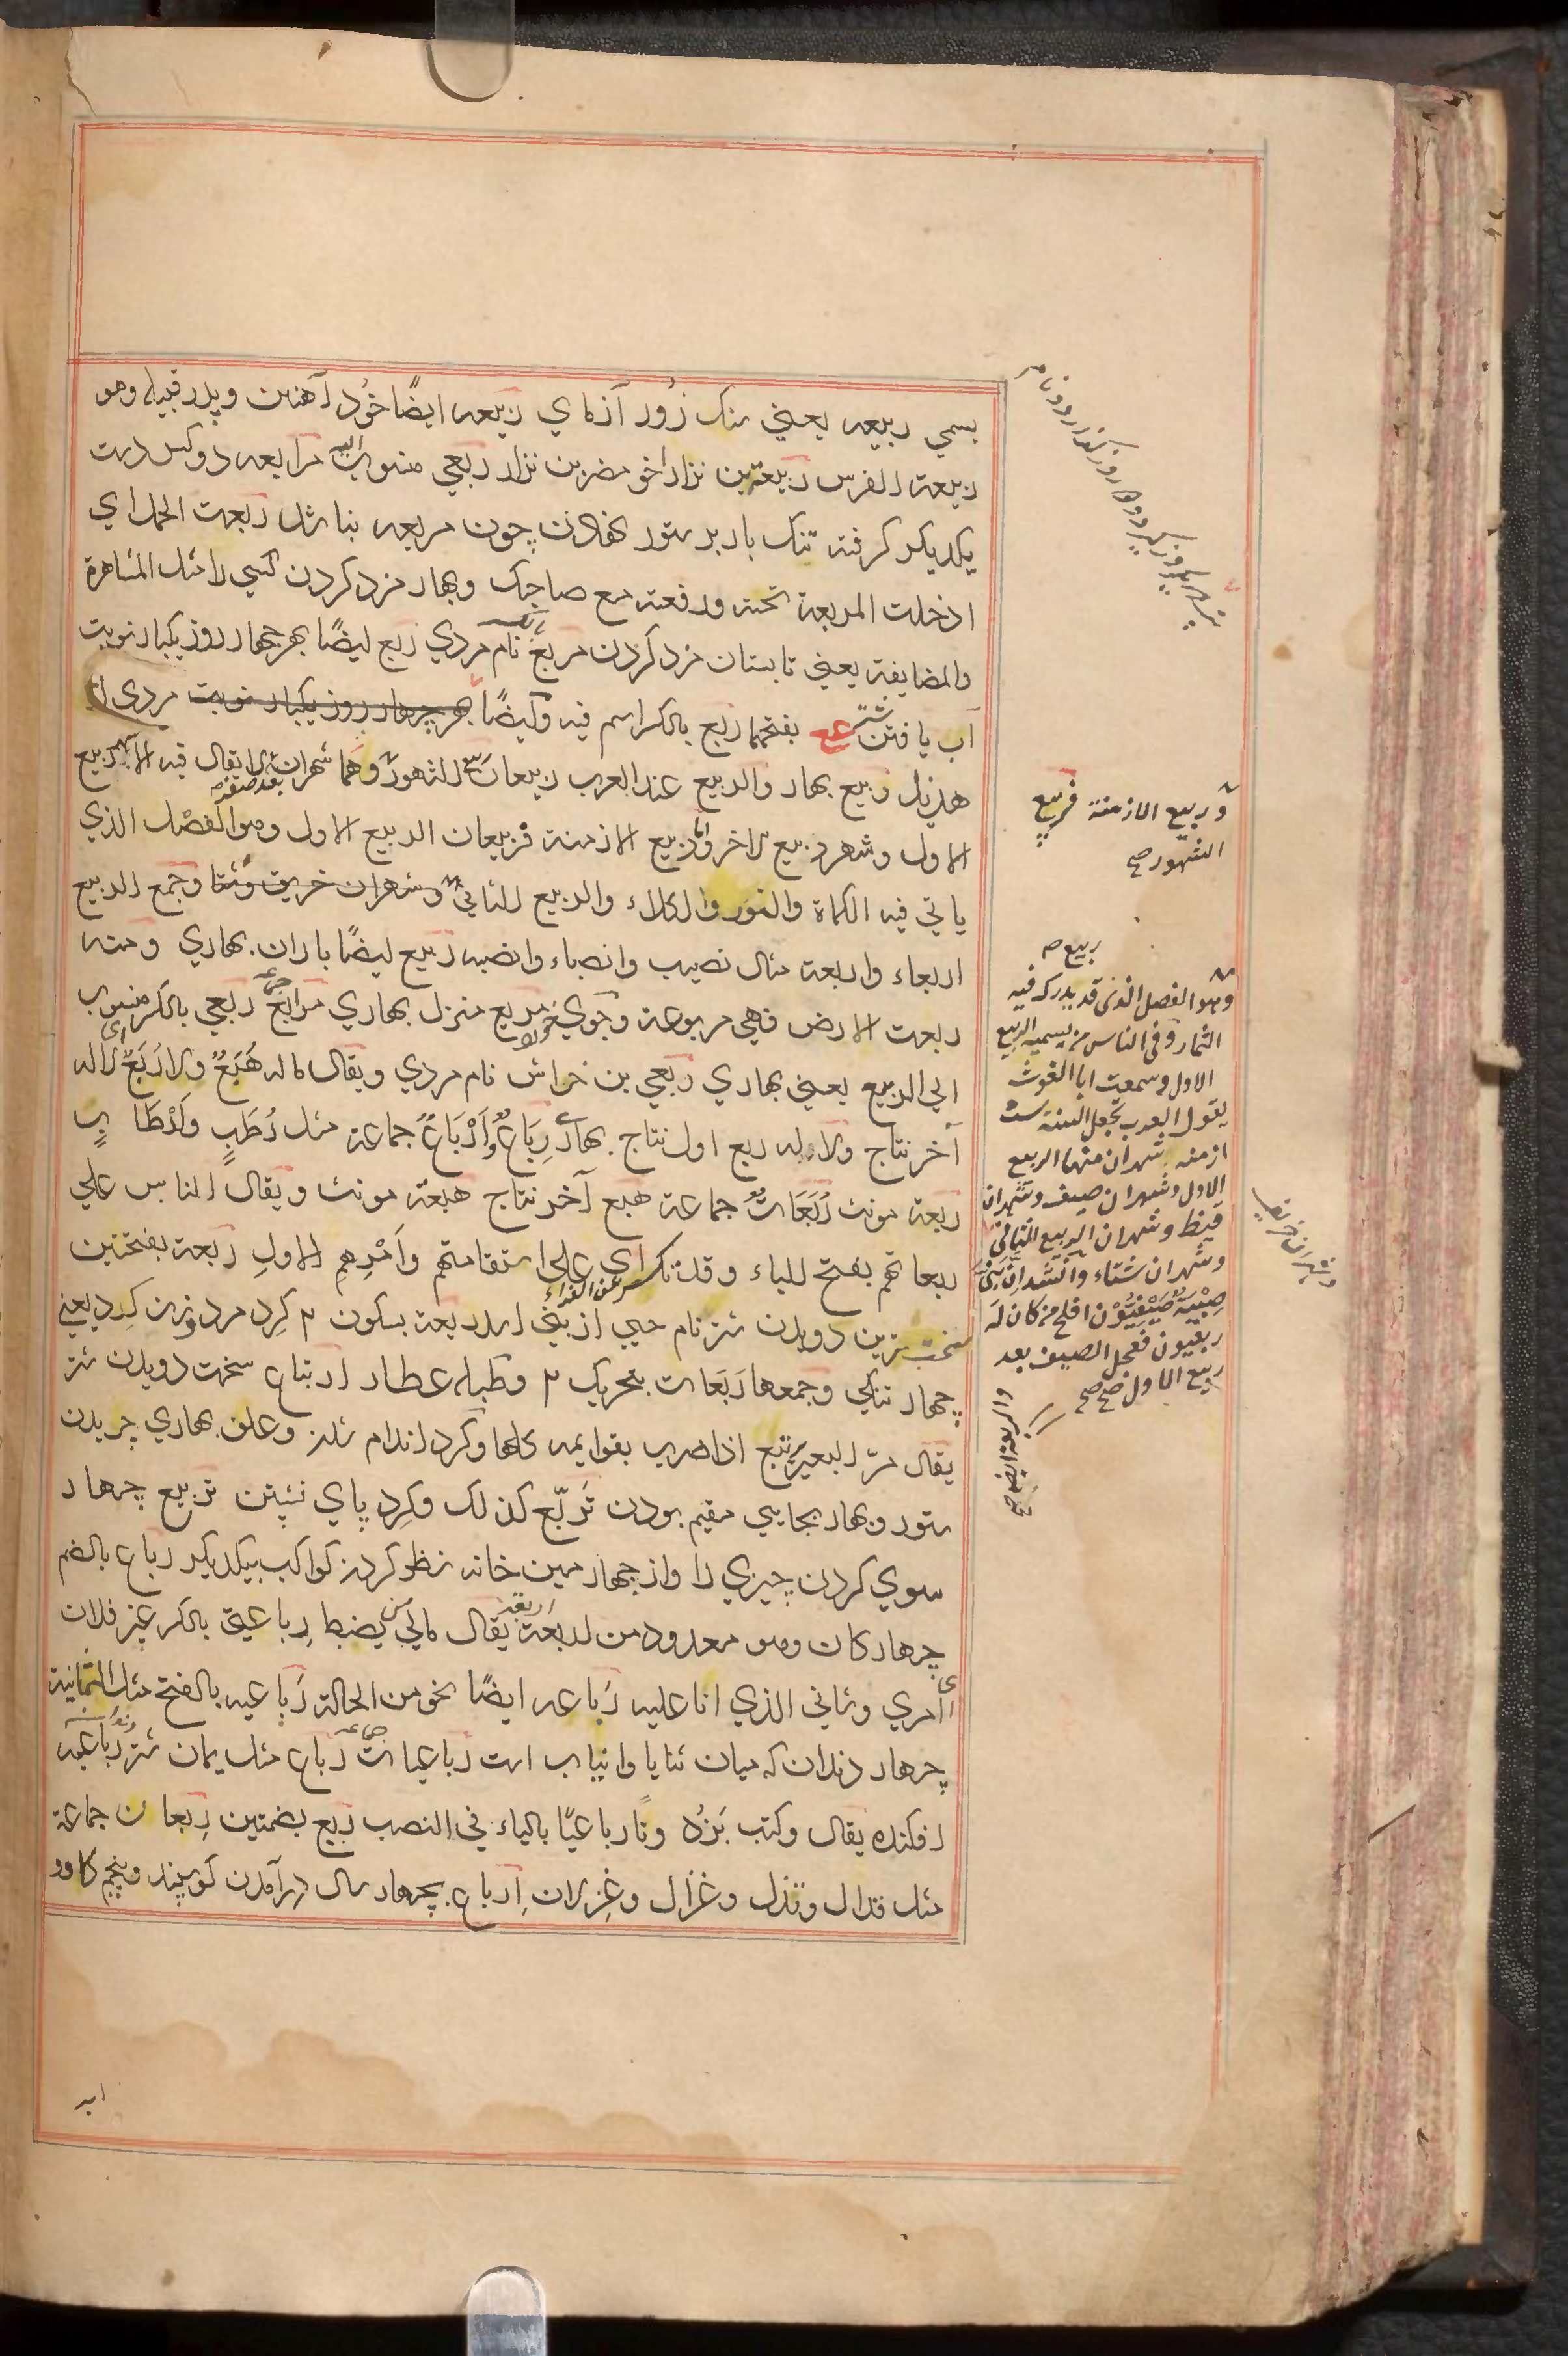 یسمی ربیعه یعنی سنک زور آزمای ربیعه ایضًا خُود آهنین و پدر قبیله وهو
ربیعة الفرس ربیعة بن نزار اخو مضر بن نزار ربعی منسوب الیه مرابعه دو کس دست
یکدیکر کرفته تنک بار بر ستور نهادن چون مربعه نباشد ربعت الحمل ای
ادخلت المربعة تحته ورفعته مع صاحبک وبهار مزد کردن کسی را مثل المشاهرة
والمصایفة یعنی تابستان مزد کردن مربع نام مردی ربع ایضًا بهر چهار روز یکبار نوبت
آب یافتن شتر ع بفتحهما ربع بالکسر اسم فیه وایضًا هر چهار روز یکبار نوبت مردی از
هذیل ربیع بهار والربیع عند العرب ربیعان ربیع الشهور وهما شهران بعد صفر لا یقال فیه الا شهر ربیع
الاول وشهر ربیع الاخر واما ربیع الازمنة فربیعان الربیع الاول وهو الفصل الذی
یاتی فیه الکماة والنور والکلاء والربیع الثانی وشهران خریف وشتا وجمع الربیع
اربعاء واربعة مثال نصیب وانصباء وانصبه ربیع ایضًا باران بهاری ومنه
ربعت الارض فهی مربوعة وجوی خورد مربع منزل بهاری مرابع ج ربعی بالکسر منسوب
الی الربیع یعنی بهاری ربعی بن خراش نام مردی ویقال ماله هُبَعٌ ولا رُبَعٌ ای لا له
آخر نتاج ولا له ربع اول نتاج بهاری رِبَاعٌ وَاَرْبَاعٌ جماعة مثل رُطَبٍ واَرْطَابٍ
ربعة مونث رُبَعَاتٌ جماعة هبع آخر نتاج هبعة مونث ویقال الناس علی
ربعاتهم بفتح الباء وقد تکسر عن الفراء ای علی استقامتهم واَمْرِهِم الاولِ ربعة بفتحتین
سخت ترین دویدن شتر نام حیی از بنی اسد ربعة بسکون ۲ کِرد مرد وزن کِرد یعنی
چهار تنکی وجمعها رَبَعَات بتحریک ۲ وطبله عطار ارتباع سخت دویدن شتر
یقال مرّ البعیر یرتبع اذا ضرب بقوایمه کلها وکرد اندام شدن وعلف بهاری چریدن
ستور وبهار بجایی مقیم بودن تَربّع کذلک وکِرد پای نشستن تربیع چهار
سوی کردن چیزی را واز چهارمین خانه نظر کردن کواکب بیکدیکر رباع بالضم
چهارکان وهو معدود من اربعة اربعة یقال مالی من یضبط رِباعتی بالکسر غیر فلان
ای امری وشانی الذی انا علیه رَباعه ایضًا نحو من الحالة رَباعیه بالفتح مثل الثمانیة
چهار دندان که میان ثنایا وانیاب است رَباعیات ج رَباع مثل یمان شتر رَباعیه
افکنده یقال رکبت بَرْذَونًا رباعیًا بالیاء فی النصب رُبع بضمتین رِبعان جماعة
مثل قذال وقذل وغزال وغِزلان اِرباع بچهار سال درآمدن کوسپند وپنجم کاو و
ابد
وربیع الازمنة فربیع
الشهور صح
ربیع ص
وهو الفصل الذی قد یدرک فیه
الثمار وفی الناس من یسمیه الربیع
الاول وسمعت ابا الغوث
یقول العرب تجعل السنة ستة
ازمنه شهران منها الربیع
الاول وشهران صیف وشهران
قیظ وشهران الربیع الثانی
وشهران شتاء وانشد اِنّ بَنِیَّ
صِبْیَةٌ صَیْفِیُّوْن افلح من کان لَه
ربعیون فجعل الصیف بعد
ربیع الاول صح صح